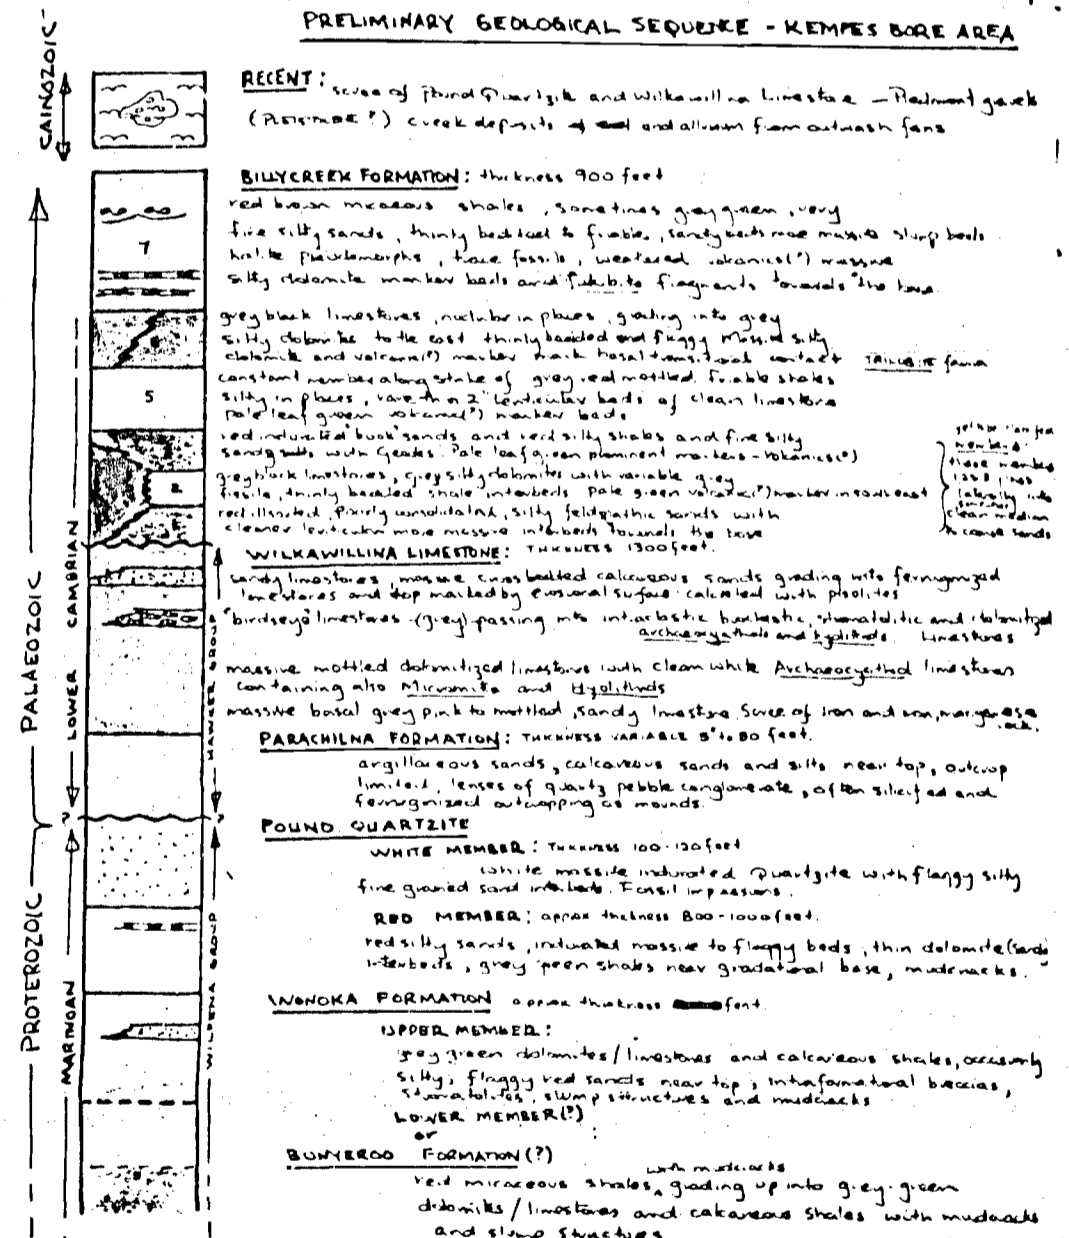 PRELIMINARY GEOLOGICAL SEQUENCE - KEMPES BORE AREA
CAINOZOIC
RECENT: scree of Pound Quartzite and Wilkawillina Limestone - Piedmont gravels
(PLEISTOCENE?) creek deposits and alluvium from outwash fans
BILLYCREEK FORMATION: thickness 900 feet
red brown micaceous shales, sometimes grey green, very
fine silty sands, thinly bedded to friable, sandy beds more massive slump beds
halite pseudomorphs, trace fossils, weathered volcanics(?) massive
silty dolomite marker beds and fragments towards the base
7
grey black limestones, nodular in places, grading into grey
silty dolomites to the east thinly bedded and flaggy Massive silty
dolomite and volcanic(?) marker mark basal transitional contact TRILOBITE fauna
constant member along strike of grey red mottled friable shales
silty in places, rare thin 2" lenticular beds of clean limestone
pale leaf green volcanic(?) marker beds
5
red indurated "book" sands and red silty shales and fine silty
sandy with Geodes. Pale leaf green prominent markers - volcanics(?)
grey black limestones, grey silty dolomites with variable grey
fissile, thinly bedded shale interbeds Pale green volcanic(?) marker in south east
2
red illsorted, poorly consolidated, silty feldspathic sands with
cleaner lenticular more massive interbeds towards the base
members
these members
laterally into
clean medium
to coarse sands
WILKAWILLINA LIMESTONE: THICKNESS 1300 feet.
sandy limestones, massive crossbedded calcareous sands grading into ferruginized
limestones and top marked by erosional surface calcreted with pisolites
"birdseye" limestones - (grey) passing into intraclastic, stromatolitic and dolomitized
archaeocyathids and hyolithids. Limestones
massive mottled dolomitized limestones with clean white Archaeocyathid limestones
containing also Micromitra and Hyolithids
massive basal grey pink to mottled, sandy limestone. Scree of iron and iron, manganese
rock.
PARACHILNA FORMATION: THICKNESS VARIABLE 5' to 80 feet.
argillaceous sands, calcareous sands and silts near top, outcrop
limited, lenses of quartz pebble conglomerate, often silicified and
ferruginized outcropping as mounds.
POUND QUARTZITE
WHITE MEMBER: THICKNESS 100-120 feet
white massive indurated Quartzite with flaggy silty
fine grained sand interbeds. Fossil impressions.
RED MEMBER: approx thickness 800-1000 feet.
red silty sands, indurated massive to flaggy beds, thin dolomite (sandy)
interbeds, grey green shales near gradational base, mudcracks.
WONOKA FORMATION approx thickness feet.
UPPER MEMBER:
grey green dolomites/limestones and calcareous shales, occasionally
silty, flaggy red sands near top, intraformational breccias,
stromatolites, slump structures and mudcracks
LOWER MEMBER(?)
or
BUNYEROO FORMATION(?)
with mudcracks
red micaceous shales, grading up into grey-green
dolomites/limestones and calcareous shales with mudcracks
and slump structures
PALAEOZOIC
LOWER CAMBRIAN
HAWKER GROUP
PROTEROZOIC
MARINOAN
WILPENA GROUP
?
?